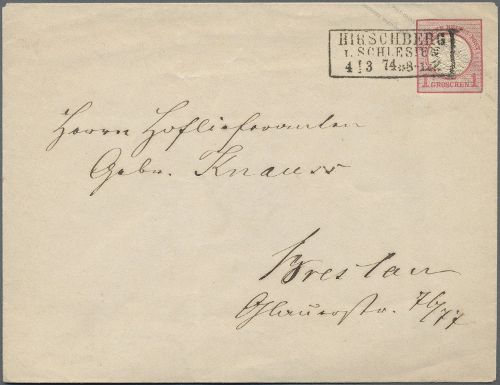 HIRSCHBERG
I. SCHLESIEN
4 3 74 8-12
1 GROSCHEN 1
Herrn Hoflieferanten
Gebr. Knauss
Breslau
Ohlauerstr. 76/77